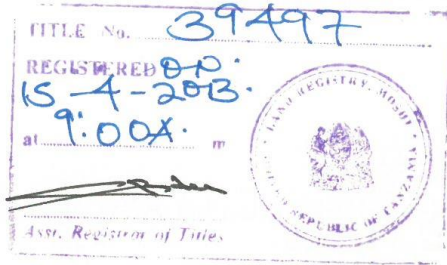 TITLE No. 39497
REGISTERED ON.
15-4-2013.
at 9:00A. m
Asst. Registrar of Titles
LAND REGISTRY, MOSHI
REPUBLIC OF TANZANIA